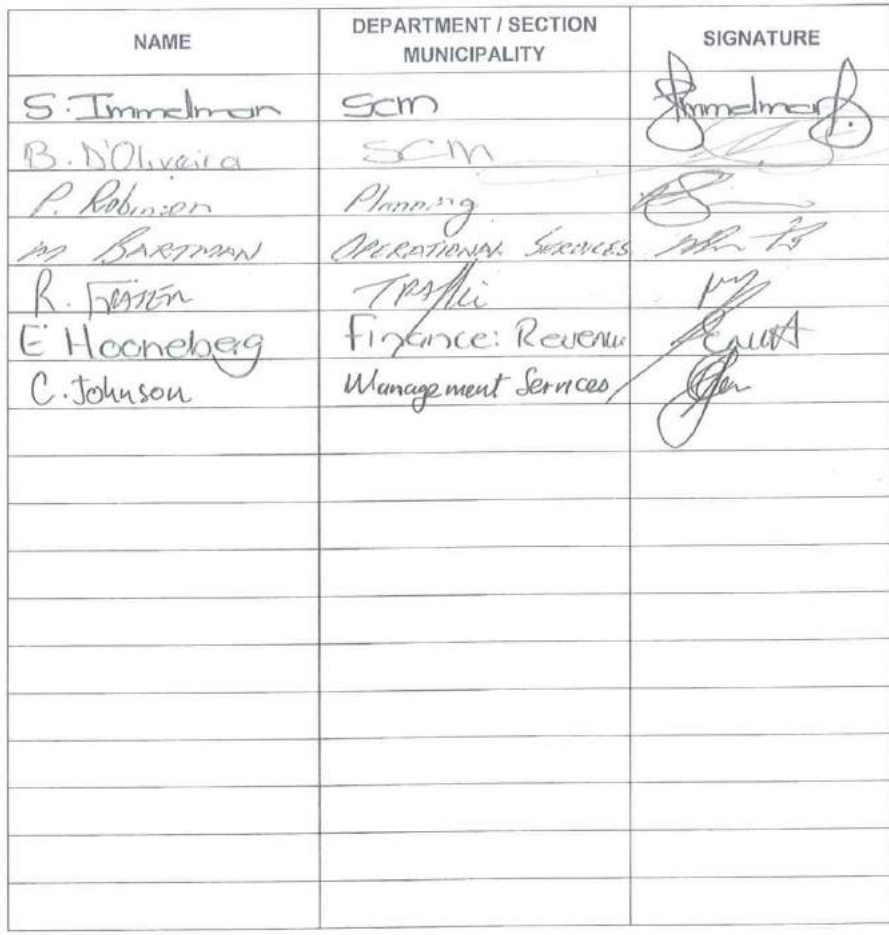 NAME DEPARTMENT / SECTION SIGNATURE
MUNICIPALITY
S. Immelman SCM Immelman
B. D'Oliveira SCM
P. Robinson Planning
M BARTMAN OPERATIONAL SERVICES
R. Traffic
E Hooneberg Finance: Revenue
C. Johnson Management Services